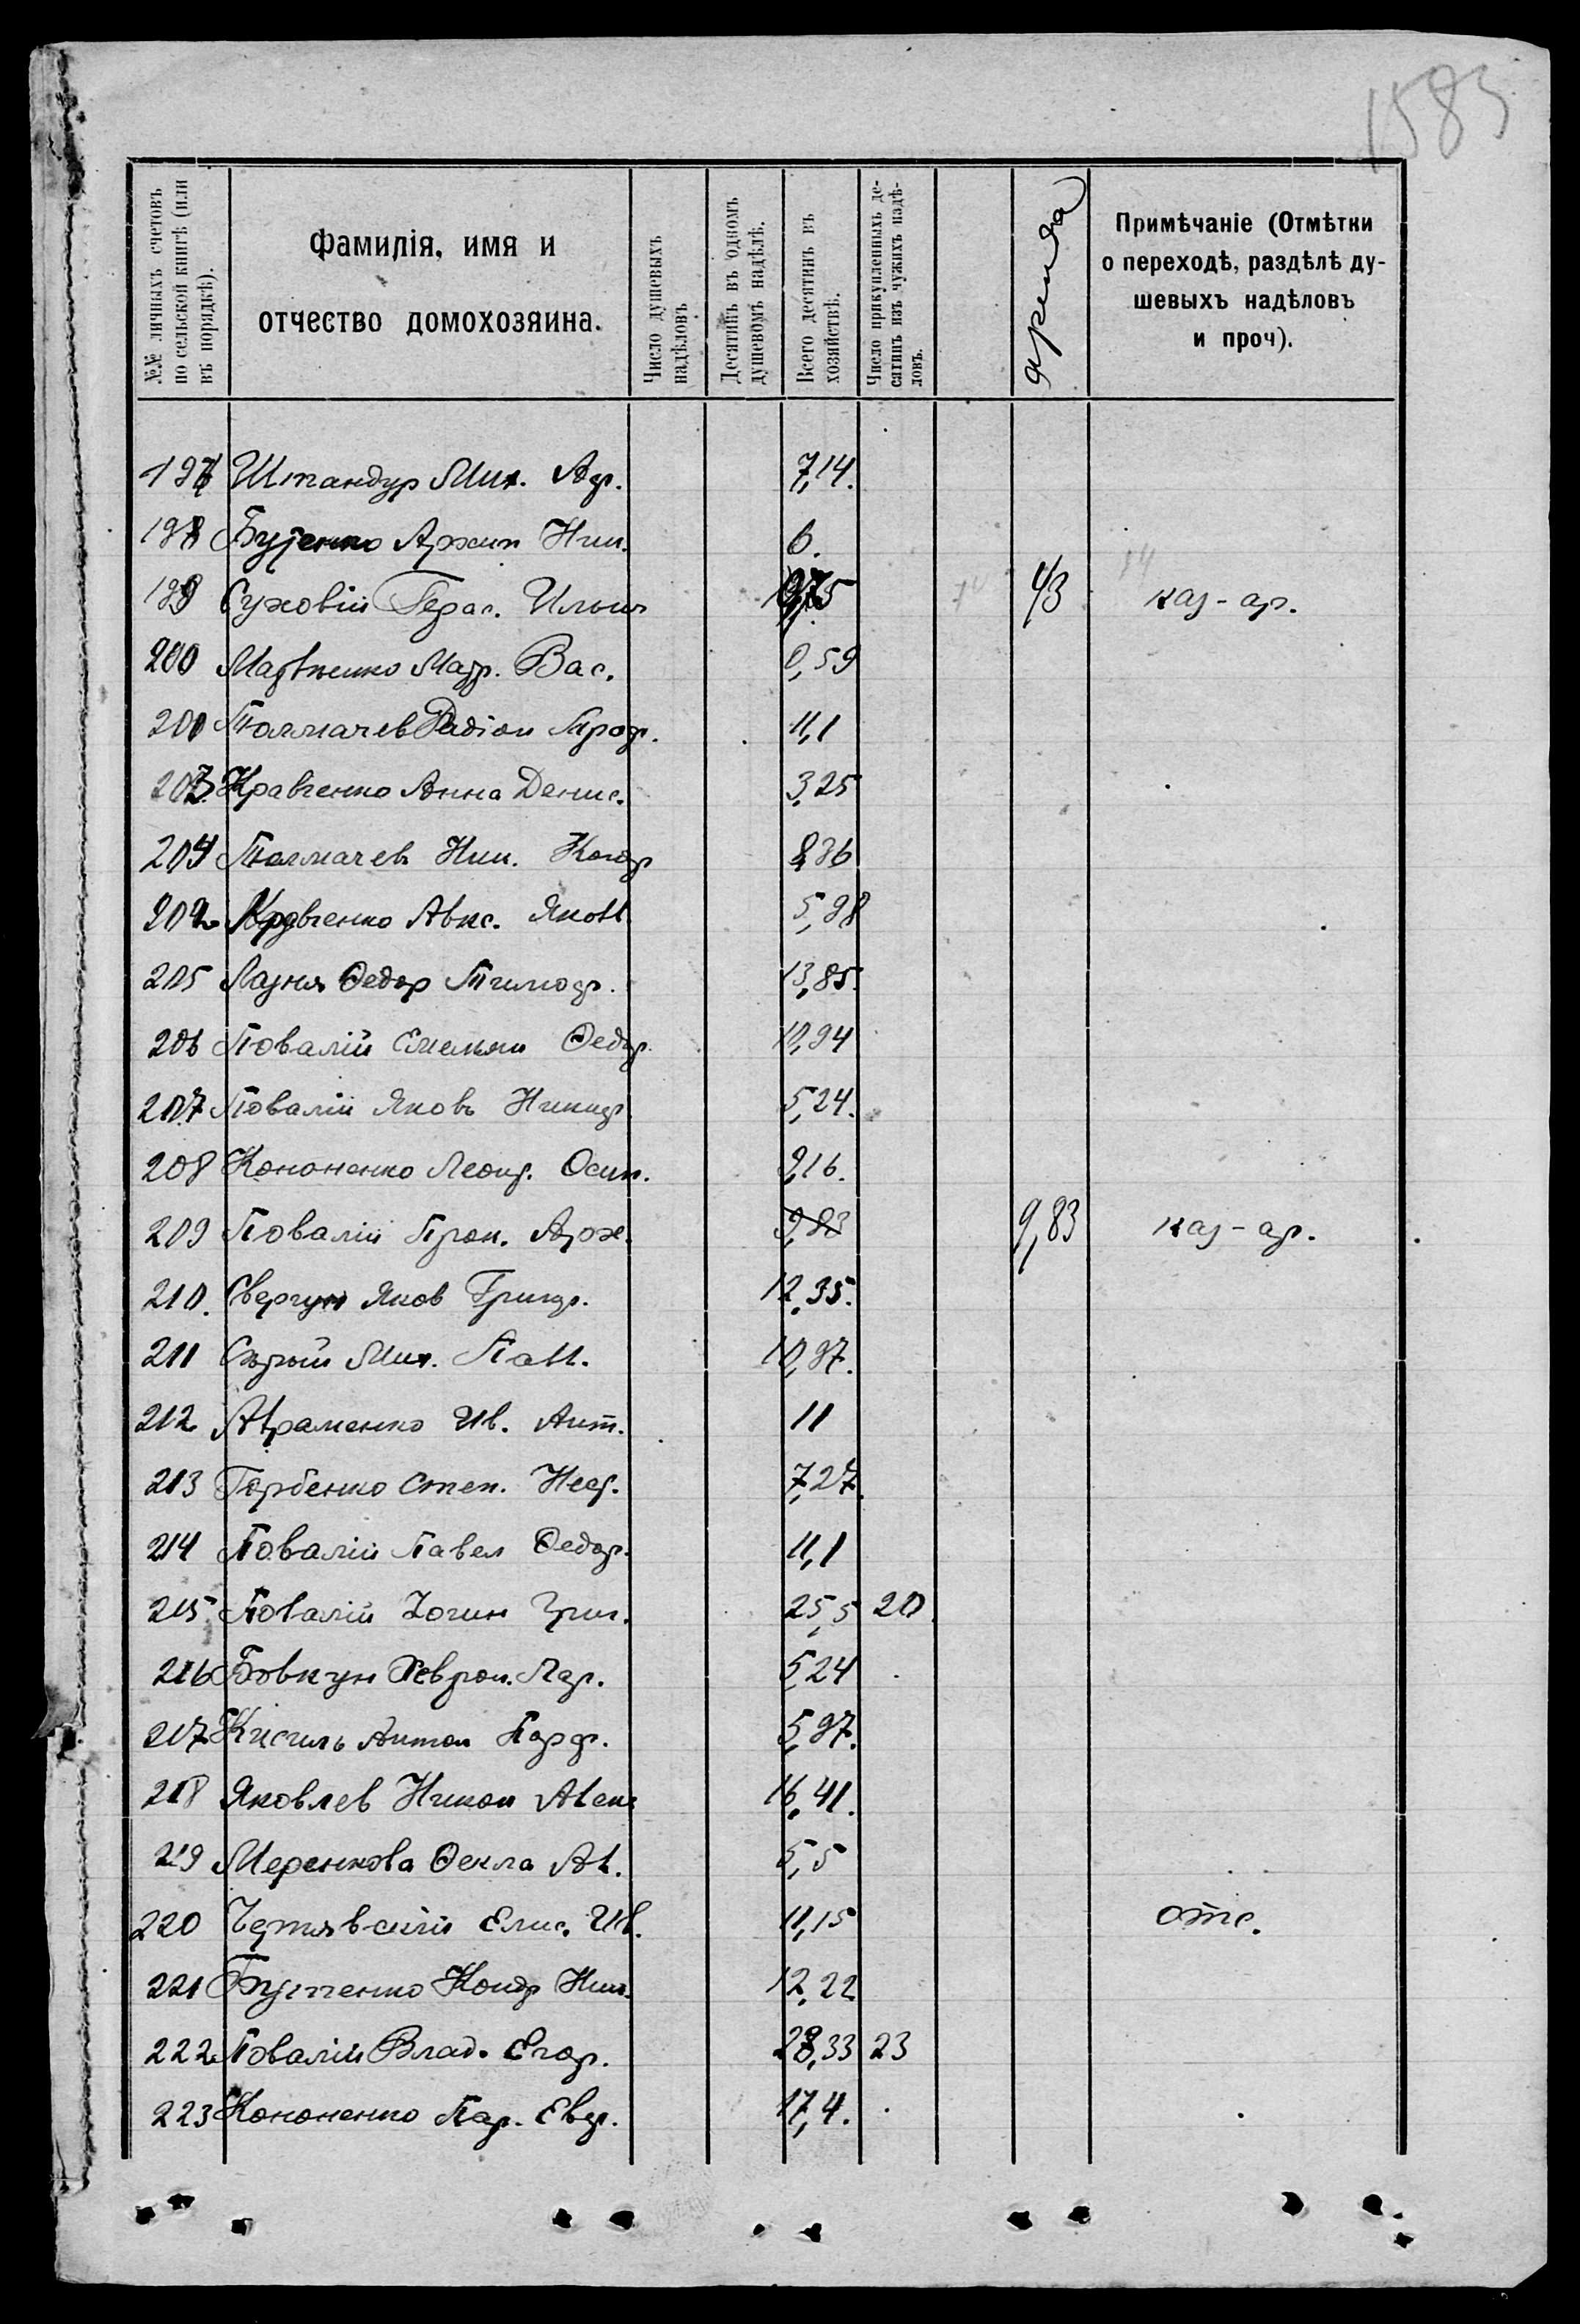 1583
№№ личныхъ счетовъ по сельской книгѣ (или въ порядкѣ).
Фамилія, имя и отчество домохозяина.
Число душевыхъ надѣловъ
Десятинъ въ одномъ душевомъ надѣлѣ.
Всего десятинъ въ хозяйствѣ.
Число прикупленныхъ десятинъ изъ чужихъ надѣловъ.
аренда
Примѣчаніе (Отмѣтки о переходѣ, раздѣлѣ душевыхъ надѣловъ и проч).
197 Штандур Мих. 7,14.
198 Архип Ник. 6.
199 Суховій Герас. Ильич 43 каз-ар.
200 Вас. 0,59
Толмачев Радіон Проф. 11,1
203. Кравченко Анна Денис. 3,25
204 Толмачев Ник. Конд 8,36
202 Кравченко Авкс. Яковл 5,98
205 Лазня Ѳедор Тимоф. 13,85.
206 Повалій Емельян Ѳедор. 10,94
207 Повалій Яковъ Никиф. 5,24.
208 Кононенко Леонт. Осип. 9,16.
209 Повалій Прок. Арх. 9,83 9,83 каз-ар.
210. Свергун Яков Григор. 12,35.
211 Сѣрый Мих. Павл. 10,97.
212 Авраменко Ив. Ант. 11
213 Горбенко Степ. Нест. 7,27.
214 Повалій Павел Ѳедор. 11,1
215 Повалій Логин Григ. 25,5 20
216 Бовкун Феврон. Лар. 5,24
217 Кисиль Антон Парф. 5,97.
218 Яковлев Никон Алек 16,41.
219 Меренкова Ѳекла Ал. 5,5
220 Чернявскій Елис. Ив. 11,15 отс.
221 Бутенко Конд Ник. 12,22
222 Повалій Влад. Егор. 28,33 23
223 Кононенко Пар. Евд. 17,4.